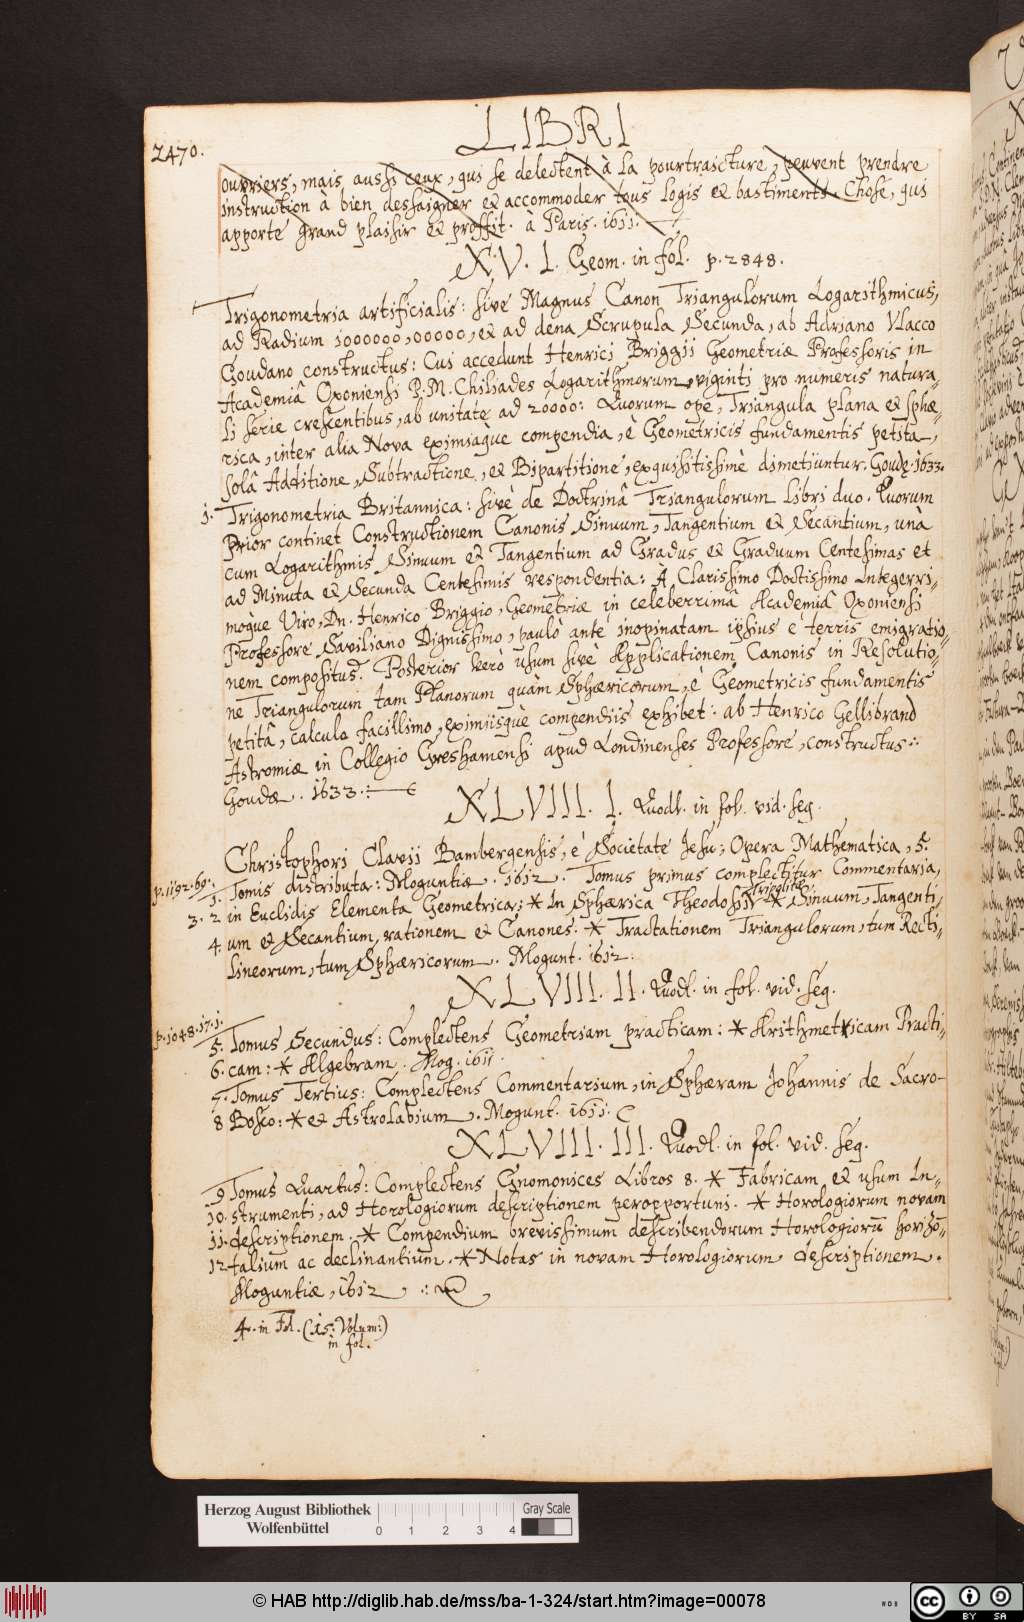 LIBRI
2470.
ouvriers, mais aussi ceux, qui se delectent à la pourtraicture, peuvent prendre
instruction à bien dessaigner et accommoder tous logis et bastiments. Chose, qui
apporte grand plaisir et proffit. à Paris. 1611.
XV. I. Geom. in fol. p. 2848.
Trigonometria artificialis: sive Magnus Canon Triangulorum Logarithmicus,
ad Radium 1000000,00000, et ad dena Scrupula Secunda, ab Adriano Vlacco
Goudano constructus: Cui accedunt Henrici Briggii Geometriæ Professoris in
Academiâ Oxoniensi P.M. Chiliades Logarithmorum viginti pro numeris natura-
li serie crescentibus, ab unitate ad 20000: Quorum ope, Triangula plana et sphæ-
rica, inter alia Nova eximiaque compendia, è Geometricis fundamentis petita,
solâ Additione, Subtractione, et Bipartitione, exquisitissimè dimetiuntur. Goudę. 1633.
1. Trigonometria Britannica: sivè de Doctrinâ Triangulorum Libri duo. Quorum
Prior continet Constructionem Canonis Sinuum, Tangentium et Secantium, unà
cum Logarithmis Sinuum et Tangentium ad Gradus et Graduum Centesimas et
ad Minuta et Secunda Centesimis respondentia: A Clarissimo Doctissimo Integerri-
moque Viro, Dn. Henrico Briggio, Geometriæ in celeberrimâ Academiâ Oxoniensi
Professore Saviliano Dignissimo, paulò antè inopinatam ipsius è terris emigratio-
nem compositus. Posterior verò usum sivè Applicationem Canonis in Resolutio-
ne Triangulorum tam Planorum quàm Sphæricorum, è Geometricis fundamentis
petitâ, calculo facillimo, eximiisque compendiis exhibet: ab Henrico Gellibrand
Astromiæ in Collegio Greshamensi apud Londinenses Professore, constructus:
Goudæ. 1633.
XLVIII. I. Quodl. in fol. vid. seq.
Christophori Clavii Bambergensis, è Societate Jesu, Opera Mathematica, 5.
p. 1192. 69. 1. Tomis distributa: Moguntiæ. 1612. Tomus primus complectitur Commentaria,
3. 2 in Euclidis Elementa Geometrica; * In Sphærica Theodosii Tripolitæ * Sinuum, Tangenti-
4. um et Secantium, rationem et Canones. * Tractationem Triangulorum, tum Recti-
lineorum, tum Sphæricorum. Mogunt. 1612.
XLVIII. II. Quodl. in fol. vid. seq.
p. 1048. 17. 1.
5. Tomus Secundus: Complectens Geometriam practicam: * Arithmetricam Practi-
6. cam: * Algebram. Mog. 1611.
7. Tomus Tertius: Complectens Commentarium, in Sphæram Johannis de Sacro-
8 Bosco: * et Astrolabium. Mogunt. 1611.
XLVIII. III. Quodl. in fol. vid. seq.
9 Tomus Quartus: Complectens Gnomonices Libros 8. * Fabricam et usum In-
10. strumenti, ad Horologiorum descriptionem peropportuni. * Horologiorum novam
11. descriptionem. * Compendium brevissimum describendorum Horologiorū horizō-
12 talium ac declinantium. * Notas in novam Horologiorum descriptionem.
Moguntiæ, 1612.
4. in Fol. (15. Volum:)
in fol.
Herzog August Bibliothek
Wolfenbüttel
0 1 2 3 4
Gray Scale
© HAB http://diglib.hab.de/mss/ba-1-324/start.htm?image=00078
WDB
cc BY SA